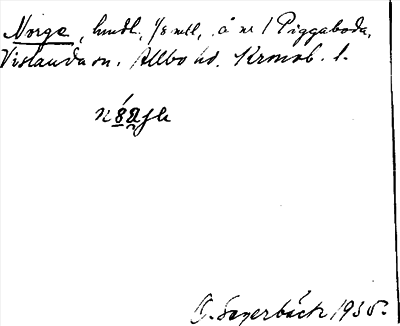 Norge, hmdl. 1/8 mtl, å nr 1 Piggaboda,
Vislanda sn. Allbo hd. Kronob. l.
O. Segerbäck 1935.